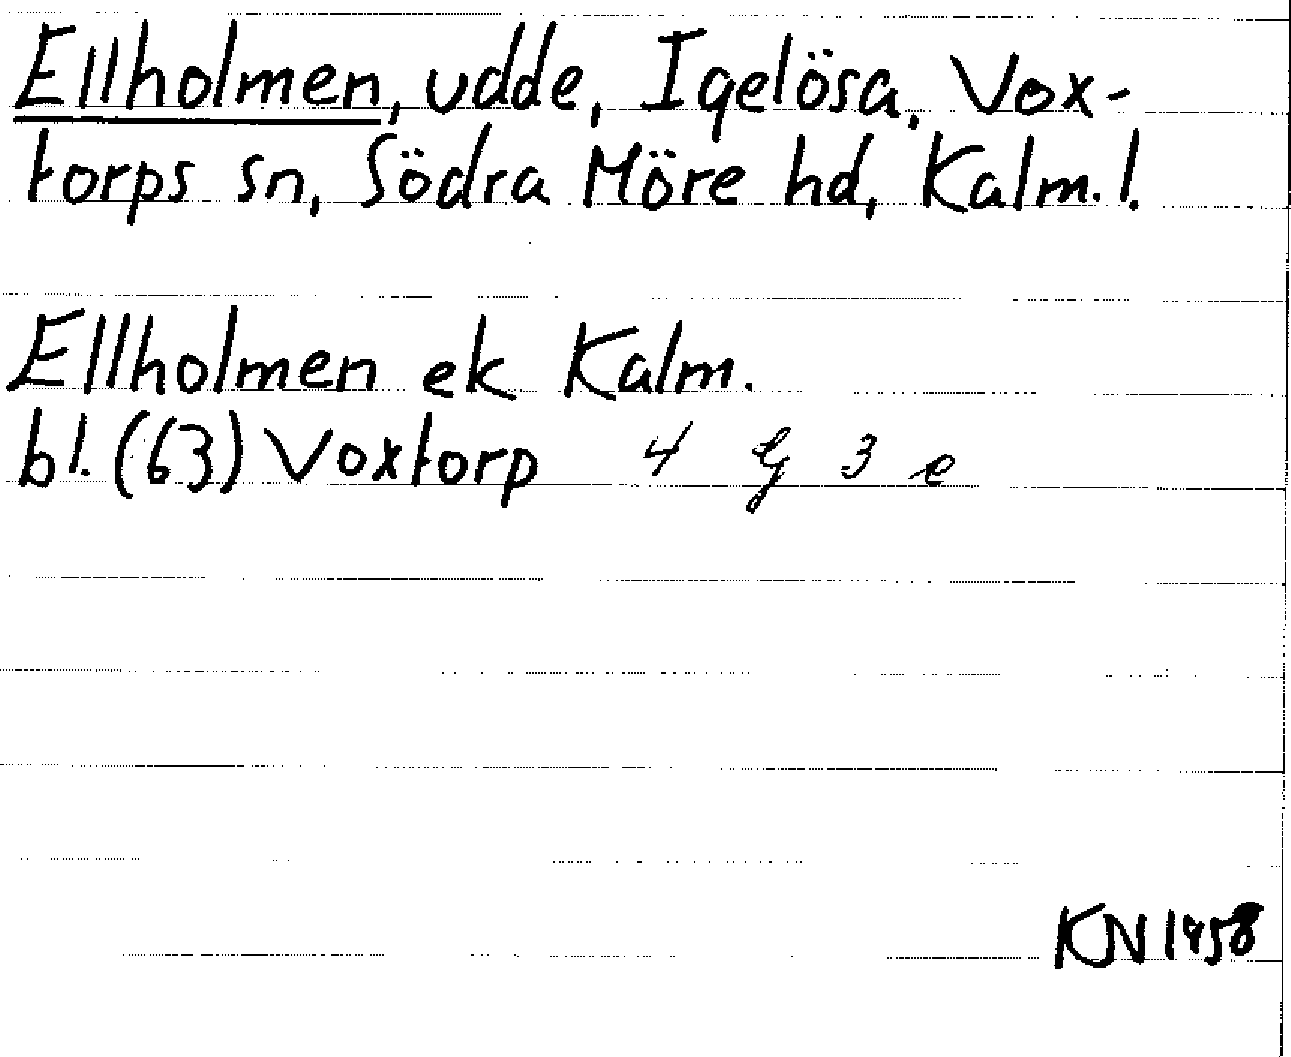 Ellholmen, udde, Igelösa, Vox-
torps sn, Södra Möre hd, Kalm. l.
Ellholmen ek Kalm.
bl. (63) Voxtorp 4 G 3 e
KN 1958